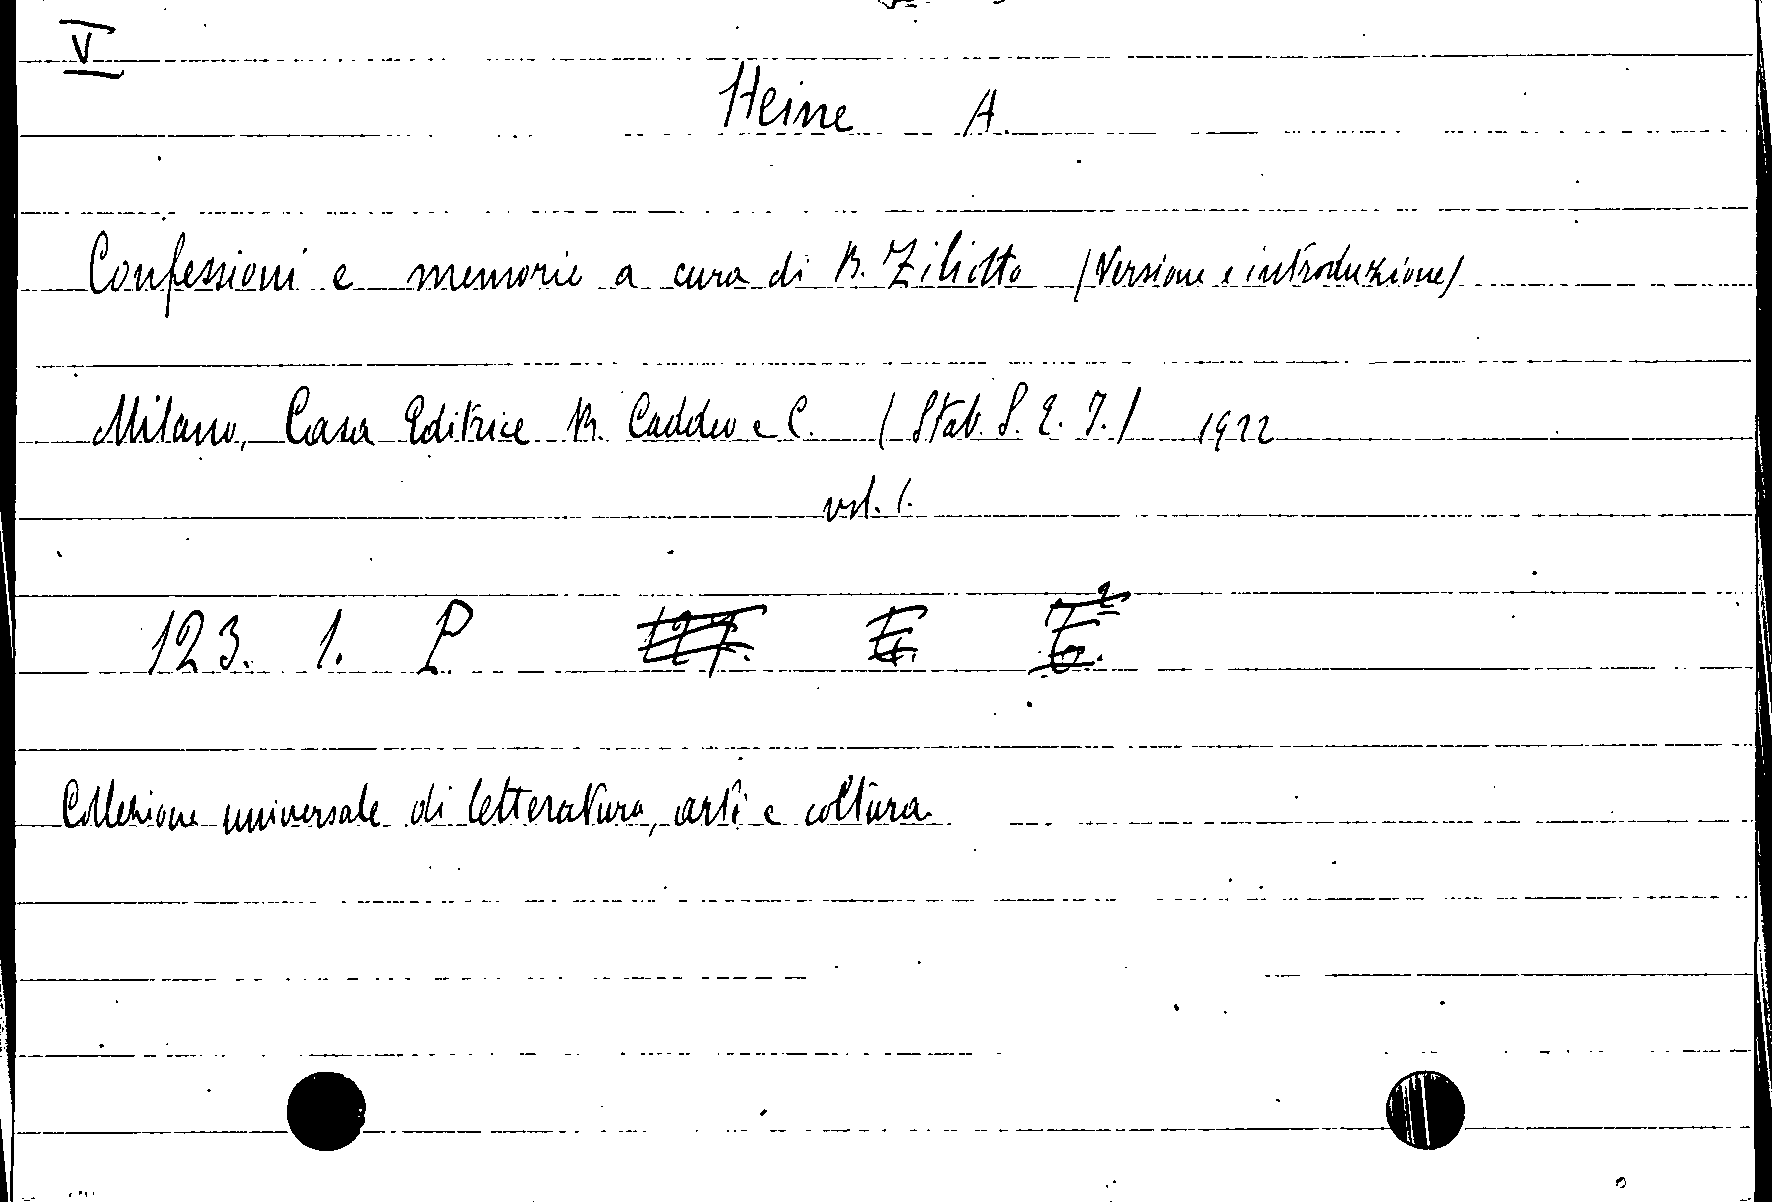 V
Heine A.
Confessioni e memorie a cura di B. Ziliotto (Versione e introduzione)
Milano, Casa Editrice R. Caddeo e C. (Stab. S. E. T.) 1922
vol. 1.
123. 1. P
Collezione universale di letteratura, arti e coltura